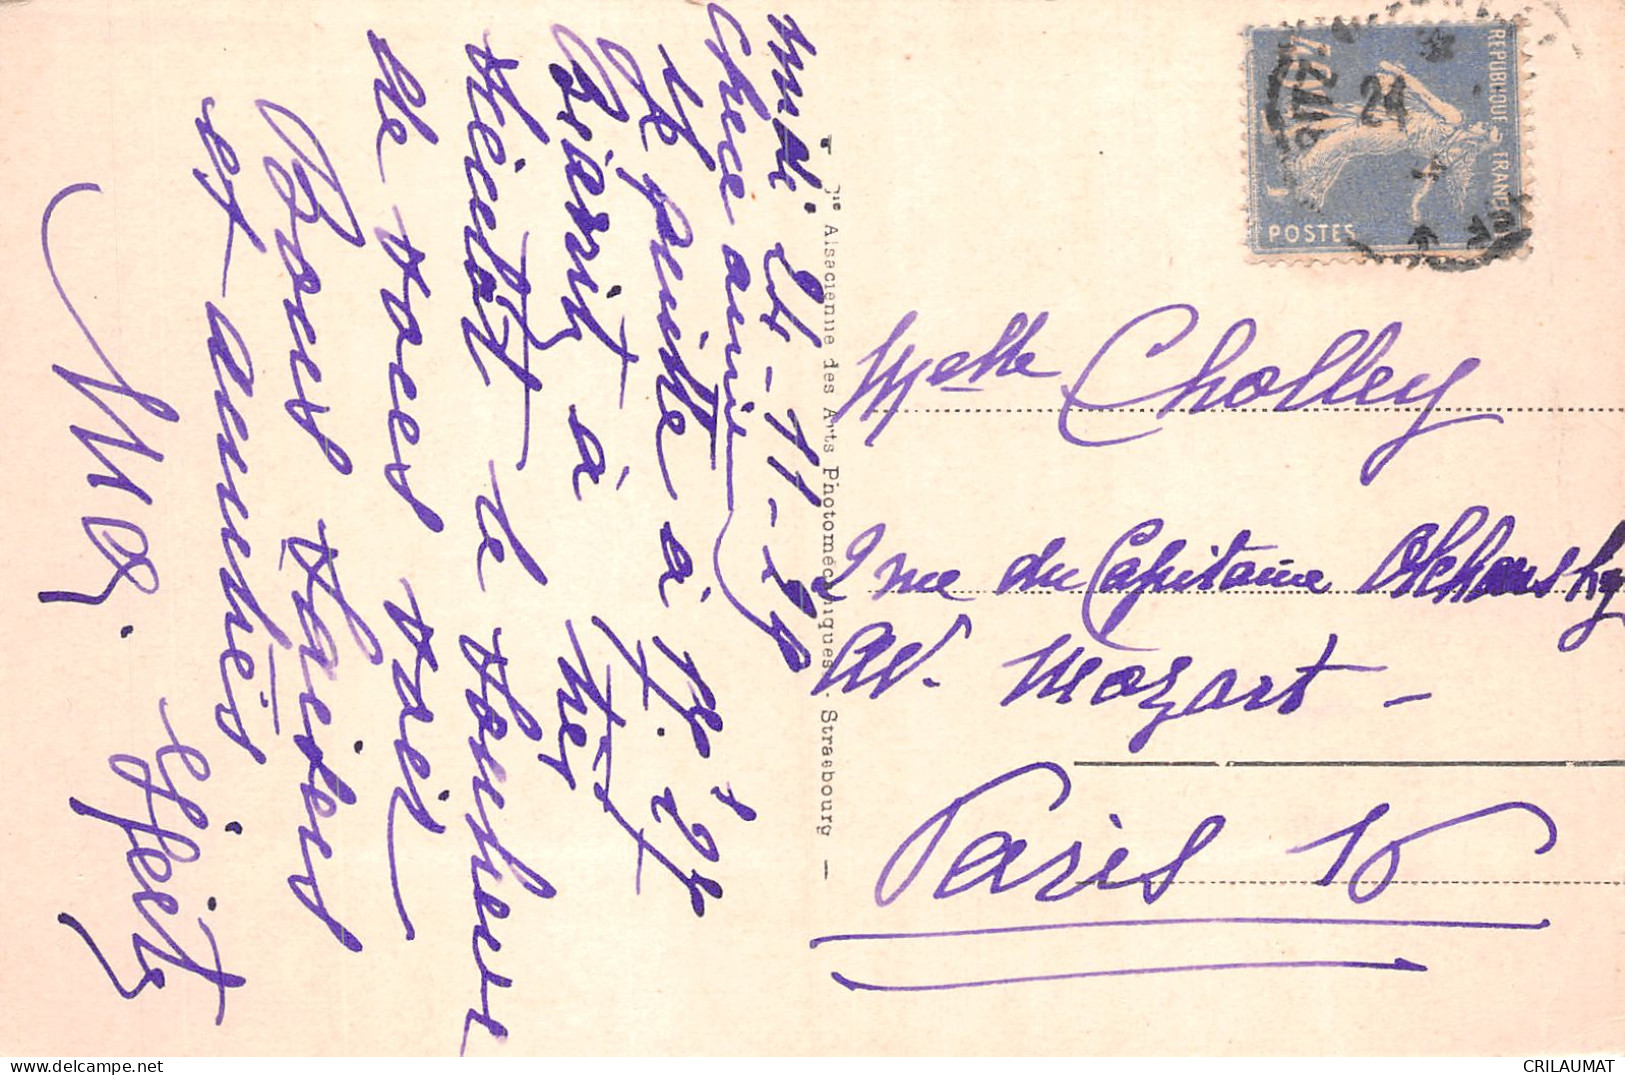 Midi 25-11-29
Chère amie
Je quitte à 17.24
Biarritz à
bientôt le bonheur
de vous voir
Bons baisers
et amitiés
Cie Alsacienne des Arts Photomécaniques - Strasbourg
REPUBLIQUE FRANÇAISE
POSTES
24
Melle Cholley
2 rue du Capitaine Olchanski
Av. Mozart -
Paris 16
delcampe.net
CRILAUMAT